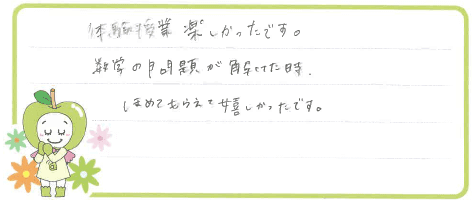 体験授業 楽しかったです。
数学の問題が解てた時、
ほめてもらえて嬉しかったです。